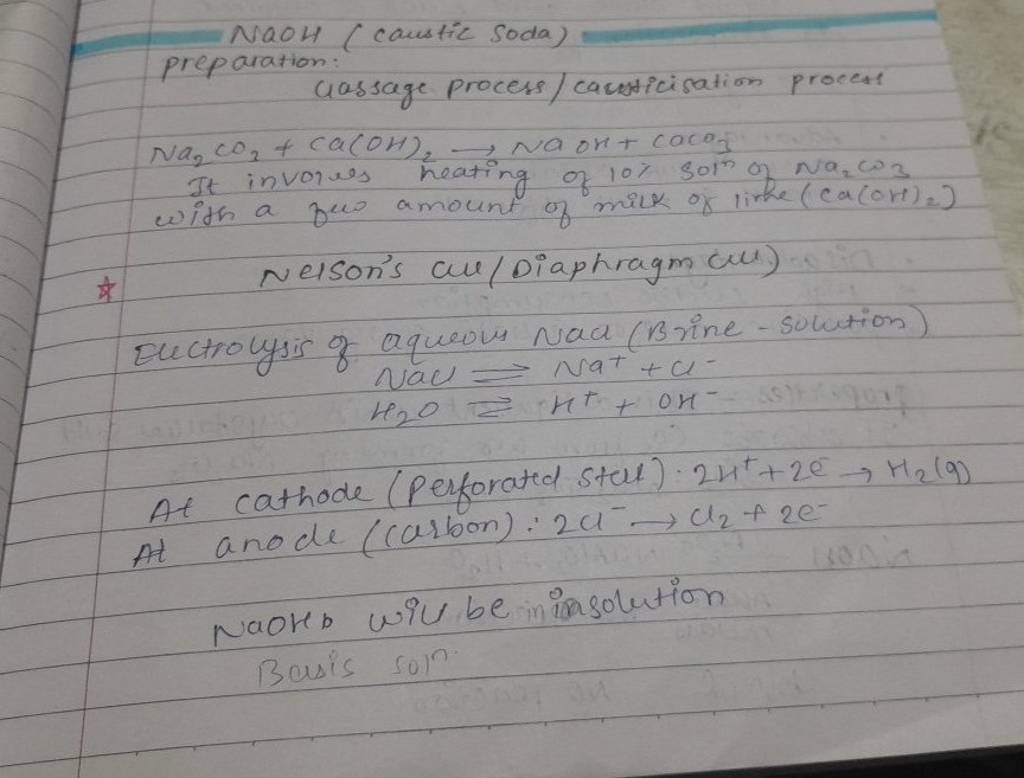 NaOH (caustic soda)
preparation:
Gossage process / causticisation process
Na₂CO₂ + Ca(OH)₂ → NaOH + CaCO₃
It involves heating of 10% solⁿ of Na₂CO₃
with a amount of milk of lime (Ca(OH)₂)
Nelson's cell / Diaphragm cell)
Electrolysis of aqueous NaCl (Brine - solution)
NaCl ⇌ Na⁺ + Cl⁻
H₂O ⇌ H⁺ + OH⁻
At cathode (perforated steel): 2H⁺ + 2e⁻ → H₂(g)
At anode (carbon): 2Cl⁻ → Cl₂ + 2e⁻
NaOH will be in solution
Basis solⁿ